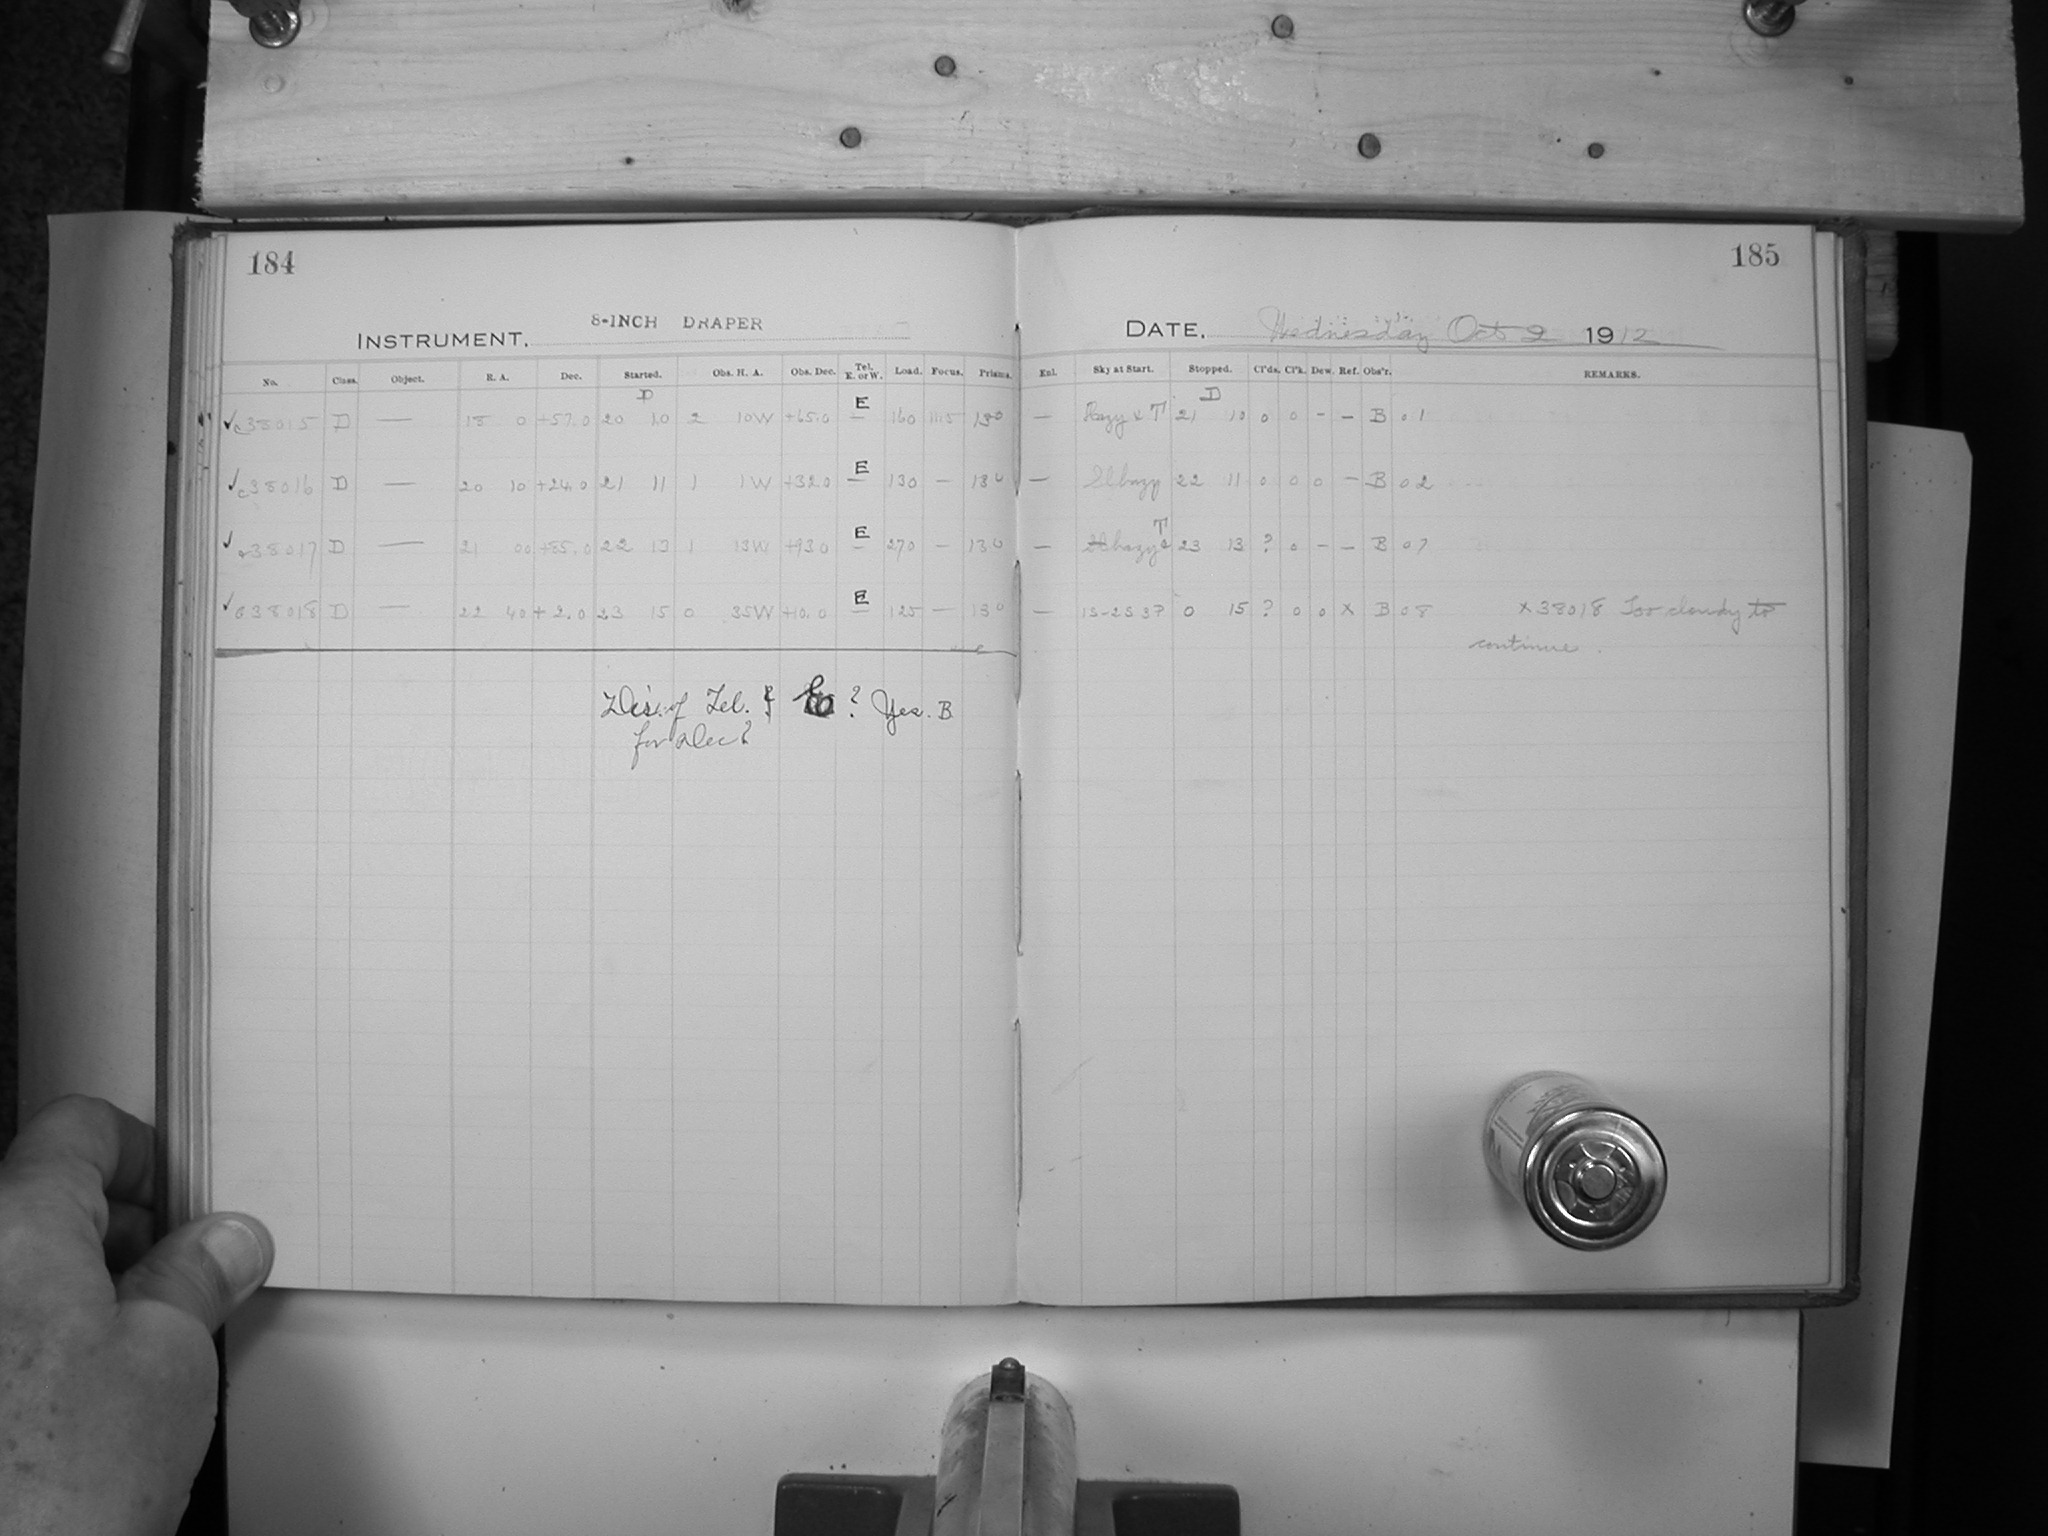 184
185
INSTRUMENT. 8-INCH DRAPER
DATE. Wednesday Oct 2 1912
No. Class. Object. R. A. Dec. Started. Obs. H. A. Obs. Dec. Tel. E. or W. Load. Focus. Prisms. Enl. Sky at Start. Stopped. Cl'ds. Cl'k. Dew. Ref. Obs'r. REMARKS.
D D
✓c38015 D — 18 0 +57.0 20 10 2 10W +65.0 E 160 1115 130 — Hazy & T 21 10 0 0 – – B 01
✓c38016 D — 20 10 +24.0 21 11 1 1W +32.0 E 130 – 130 — Sl hazy 22 11 0 0 0 – B 02
✓c38017 D — 21 00 +85.0 22 13 1 13W +93.0 E 270 – 130 — hazy & T 23 13 ? 0 – – B 07
✓c38018 D — 22 40 +2.0 23 15 0 35W +10.0 E 125 – 130 — 15-25 37 0 15 ? 0 0 × B 08 ×38018 Too cloudy to
continue.
Dis. of Tel. ? Yes. B
for Dec?